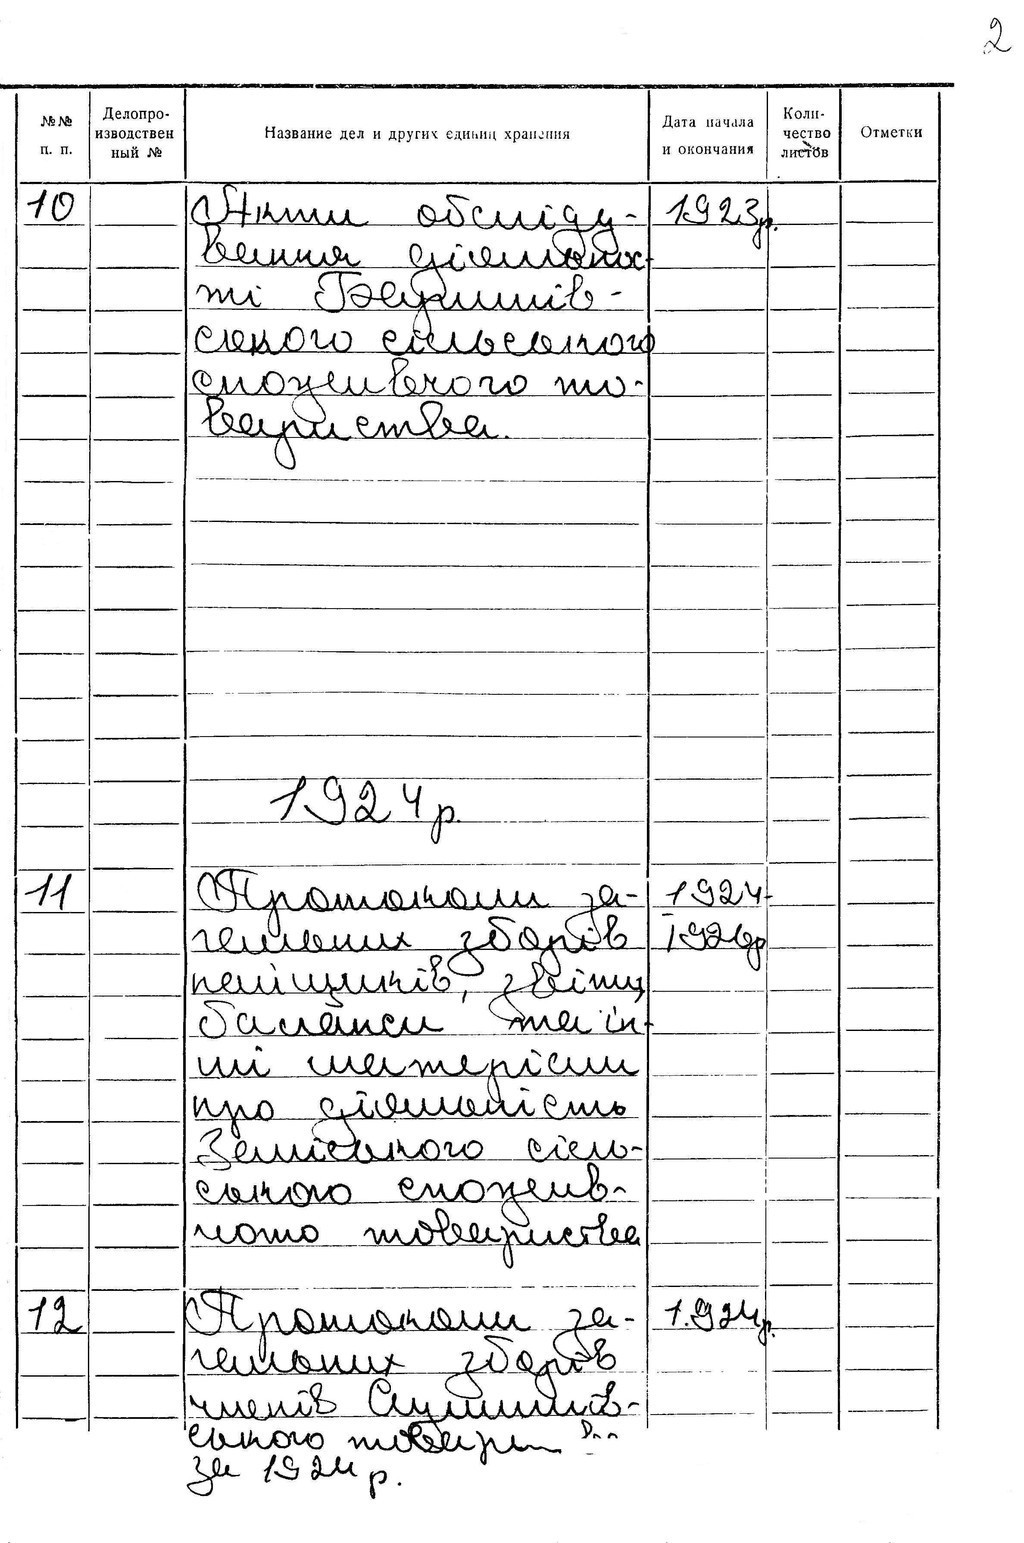 2
№№ п. п.
Делопро-
изводствен
ный №
Название дел и других единиц хранения
Дата начала
и окончания
Коли-
чество
листов
Отметки
10 Акти обсліду- 1923р.
вання діяльнос-
ті
ського сільського
споживчого то-
вариства.
1924р.
11 Протоколи за- 1924-
гальних зборів 1926р
пайщиків, звіти,
баланси та ін-
ші матеріали
про діяльність
сіль-
ського спожив-
чого товариства
12 Протоколи за- 1924р.
гальних зборів
членів
ського
за 1924 р.